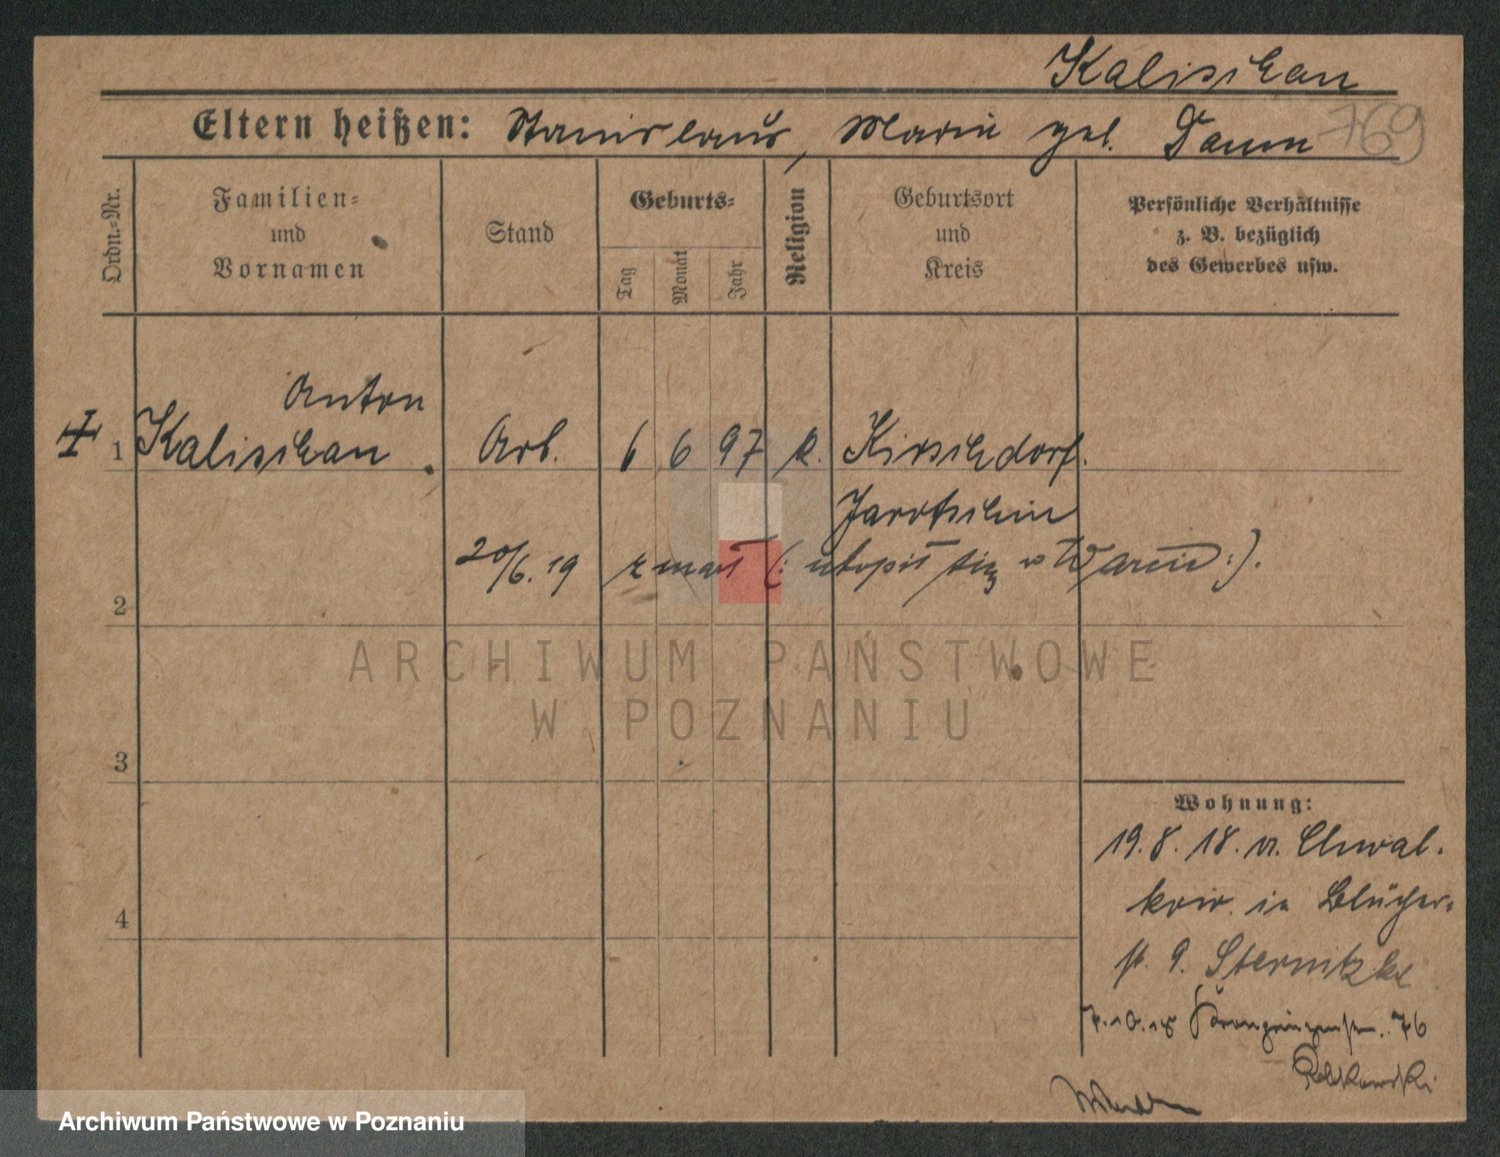 Kalisch an
769
Eltern heißen: Stanislaus, Marie geb. Damm
Ordn.-Nr.
Familien-
und
Vornamen
Stand
Geburts-
Tag
Monat
Jahr
Religion
Geburtsort
und
Kreis
Persönliche Verhältnisse
z. B. bezüglich
des Gewerbes usw.
Anton
1 Kalischan Arb. 6 6 97 k. Kirschdorf.
Jarotschin
20/6. 19 zmarł (: utopił się w Warcie :).
2
3
4
ARCHIWUM PAŃSTWOWE
W POZNANIU
Wohnung:
19. 8. 18. v. Chwal-
kow. in Blücher-
st. 9. Sternitzke
7.10.18 Kronprinzenstr. 76
Archiwum Państwowe w Poznaniu